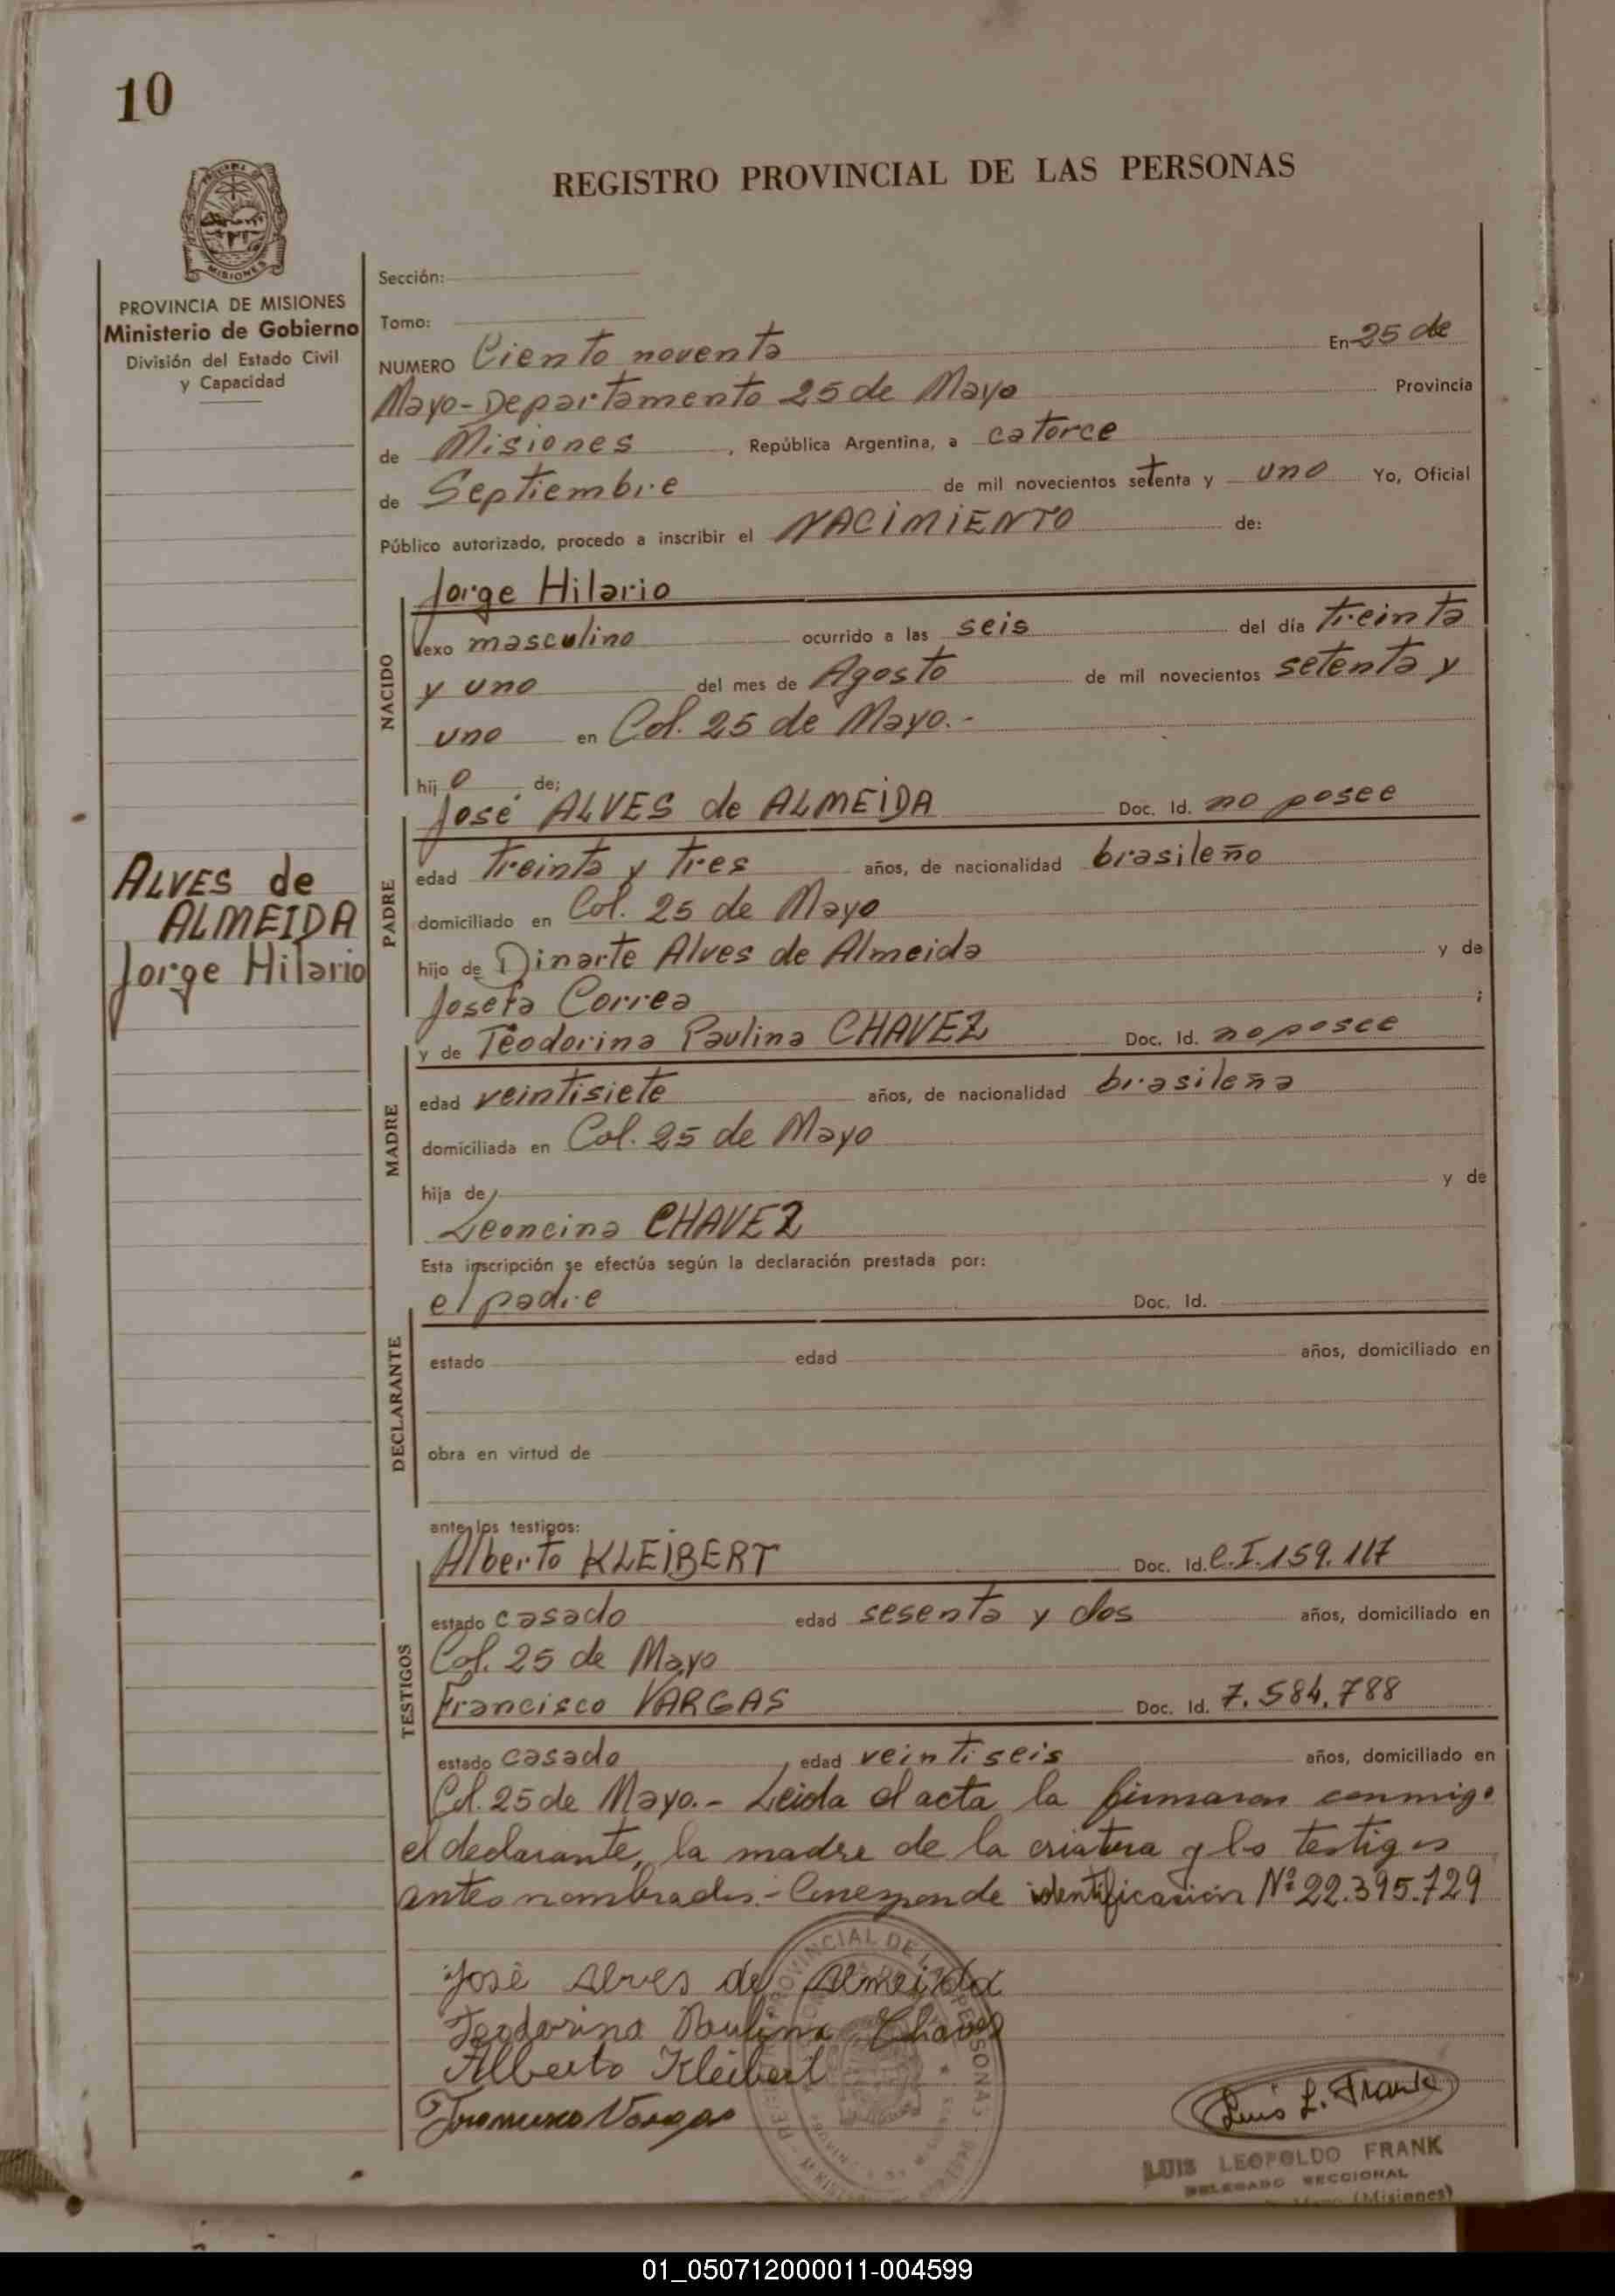 10
REGISTRO PROVINCIAL DE LAS PERSONAS
MISIONES
PROVINCIA DE MISIONES
Ministerio de Gobierno
División del Estado Civil
y Capacidad
Sección:
Tomo:
NUMERO Ciento noventa En 25 de
Mayo-Departamento 25 de Mayo Provincia
de Misiones, República Argentina, a catorce
de Septiembre de mil novecientos setenta y uno Yo, Oficial
Público autorizado, procedo a inscribir el NACIMIENTO de:
NACIDO
Jorge Hilario
sexo masculino ocurrido a las seis del día treinta
y uno del mes de Agosto de mil novecientos setenta y
uno en Col. 25 de Mayo.-
hij o de;
ALVES de
ALMEIDA
Jorge Hilario
PADRE
José ALVES de ALMEIDA Doc. Id. no posee
edad treinta y tres años, de nacionalidad brasileño
domiciliado en Col. 25 de Mayo
hijo de Dinarte Alves de Almeida y de
Josefa Correa ;
MADRE
y de Teodorina Paulina CHAVEZ Doc. Id. no posee
edad veintisiete años, de nacionalidad brasileña
domiciliada en Col. 25 de Mayo
hija de y de
Leoncina CHAVEZ
Esta inscripción se efectúa según la declaración prestada por:
DECLARANTE
el padre Doc. Id.
estado edad años, domiciliado en
obra en virtud de
ante los testigos:
TESTIGOS
Alberto KLEIBERT Doc. Id. C.I.159.117
estado casado edad sesenta y dos años, domiciliado en
Col. 25 de Mayo
Francisco VARGAS Doc. Id. 7.584.788
estado casado, edad veintiseis años, domiciliado en
Col. 25 de Mayo.- Leida el acta la firmaron conmigo
el declarante, la madre de la criatura y los testigos
antes nombrados.- Corresponde identificación Nº 22.395.729
José Alves de Almeida
Teodorina Paulina Chavez
Alberto Kleibert
Francisco Vargas
Luis L. Frank
LUIS LEOPOLDO FRANK
DELEGADO SECCIONAL
Mayo (Misiones)
01_050712000011-004599